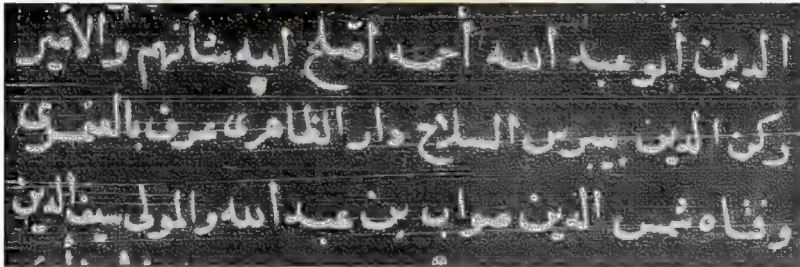 الدين أبو عبد الله أحمد أصلح الله شأنهم والأمير
ركن الدين بيبرس السلاح دار الظاهرى عرف
وفتاه شمس الدين صواب بن عبد الله والمولى سيف الدين